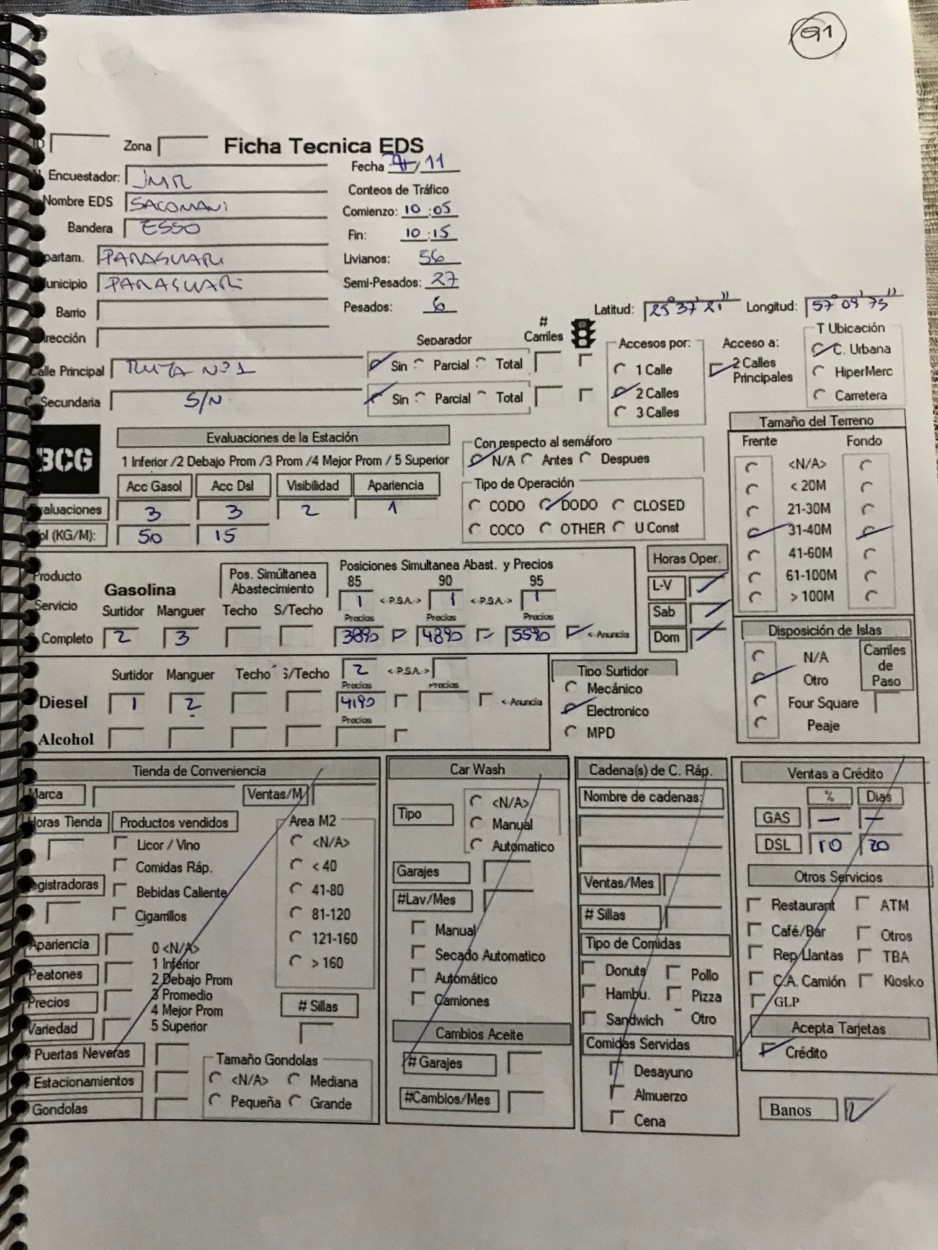 91
Zona
Ficha Tecnica EDS
Fecha /11
Encuestador: JMR
Conteos de Tráfico
Nombre EDS SACOMANI
Comienzo: 10:05
Bandera ESSO
Fin: 10:15
partam. PARAGUARI
Livianos: 56
unicipio PARAGUARI
Semi-Pesados: 27
Barrio
Pesados: 6
Latitud: 25° 37' 21" Longitud: 57° 09' 75"
irección
Separador # Carriles
Accesos por: Acceso a: T Ubicación
alle Principal RUTA Nº 1 Sin Parcial Total
1 Calle 2 Calles Principales C. Urbana
HiperMerc
Secundaria S/N. Sin Parcial Total
2 Calles
3 Calles Carretera
BCG
Evaluaciones de la Estación
1 Inferior /2 Debajo Prom /3 Prom /4 Mejor Prom / 5 Superior
Con respecto al semáforo
N/A Antes Despues
Tamaño del Terreno
Frente Fondo
<N/A>
< 20M
21-30M
31-40M
41-60M
61-100M
> 100M
Acc Gasol Acc Dsl Visibilidad Apariencia
aluaciones 3 3 2 1
ol (KG/M): 50 15
Tipo de Operación
CODO DODO CLOSED
COCO OTHER U Const
Producto
Servicio
Gasolina
Pos. Simúltanea Abastecimiento
Posiciones Simultanea Abast. y Precios
85 90 95
1 <-P.S.A-> 1 <-P.S.A-> 1
Surtidor Manguer Techo S/Techo Precios Precios Precios
Completo 2 3 3890 4890 5590 <-Anuncia
Horas Oper.
L-V
Sab
Dom
Disposición de Islas
N/A
Otro
Four Square
Peaje
Carriles de Paso
Surtidor Manguer Techo S/Techo 2 <-P.S.A->
Precios Precios
Diesel 1 2 4190 <-Anuncia
Precios
Alcohol
Tipo Surtidor
Mecánico
Electronico
MPD
Tienda de Conveniencia
Marca Ventas/M
Horas Tienda Productos vendidos
Licor / Vino
Comidas Ráp.
egistradoras Bebidas Caliente
Cigarrillos
Area M2
<N/A>
< 40
41-80
81-120
121-160
> 160
Apariencia
Peatones
Precios
Variedad
0 <N/A>
1 Inferior
2 Debajo Prom
3 Promedio
4 Mejor Prom
5 Superior
# Sillas
Puertas Neveras
Estacionamientos
Gondolas
Tamaño Gondolas
<N/A> Mediana
Pequeña Grande
Car Wash
Tipo
<N/A>
Manual
Automatico
Garajes
#Lav/Mes
Manual
Secado Automatico
Automático
Camiones
Cambios Aceite
# Garajes
#Cambios/Mes
Cadena(s) de C. Ráp.
Nombre de cadenas:
Ventas/Mes
# Sillas
Tipo de Comidas
Donuts Pollo
Hambu. Pizza
Sandwich Otro
Comidas Servidas
Desayuno
Almuerzo
Cena
Ventas a Crédito
% Dias
GAS — —
DSL 10 20
Otros Servicios
Restaurant ATM
Café/Bar Otros
Rep.Llantas TBA
C.A. Camión Kiosko
GLP
Acepta Tarjetas
Crédito
Banos